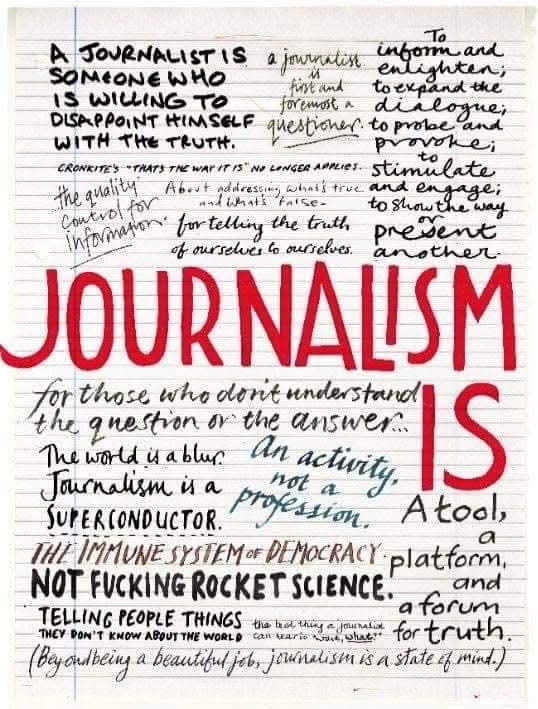 A JOURNALIST IS
SOMEONE WHO
IS WILLING TO
DISAPPOINT HIMSELF
WITH THE TRUTH.
a journalist
is
first and
foremost a
questioner.
To
inform and
enlighten;
to expand the
dialogue;
to probe and
provoke;
to
stimulate
and engage;
to show the way
or
present
another.
CRONKITE'S "THAT'S THE WAY IT IS" NO LONGER APPLIES.
the quality
control for
information.
About addressing what's true
and what's false-
for telling the truth
of ourselves to ourselves.
JOURNALISM
IS
for those who don't understand
the question or the answer...
The world is a blur.
Journalism is a
SUPERCONDUCTOR.
An activity,
not a
profession.
A tool,
a
platform,
and
a forum
for truth.
THE IMMUNE SYSTEM OF DEMOCRACY.
NOT FUCKING ROCKET SCIENCE.
TELLING PEOPLE THINGS
THEY DON'T KNOW ABOUT THE WORLD
the best thing a journalist
can wear is "what?"
(Beyond being a beautiful job, journalism is a state of mind.)